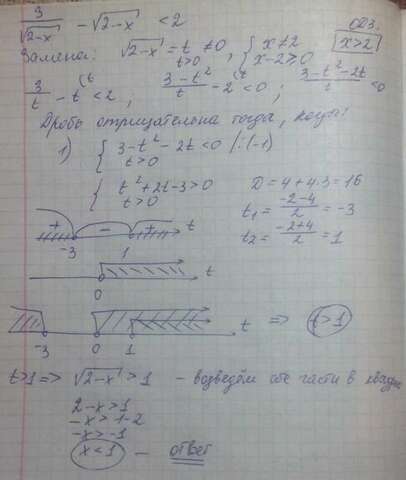 3/√(2-x) - √(2-x) < 2
ОДЗ:
Замена: √(2-x) = t ≠ 0, t>0 { x≠2 x-2≥0 x>2
3/t - t < 2, (3-t²)/t - 2 < 0; (3-t²-2t)/t < 0
Дробь отрицательна тогда, когда:
1) { 3-t²-2t<0 |:(-1)
t>0
{ t²+2t-3>0
t>0
D = 4+4·3=16
t₁ = (-2-4)/2 = -3
t₂ = (-2+4)/2 = 1
+ - + t
-3 1
0 t
-3 0 1 t => t>1
t>1 => √(2-x) > 1 - возведём обе части в квадрат
2-x>1
-x>1-2
-x>-1
x<1 - ответ